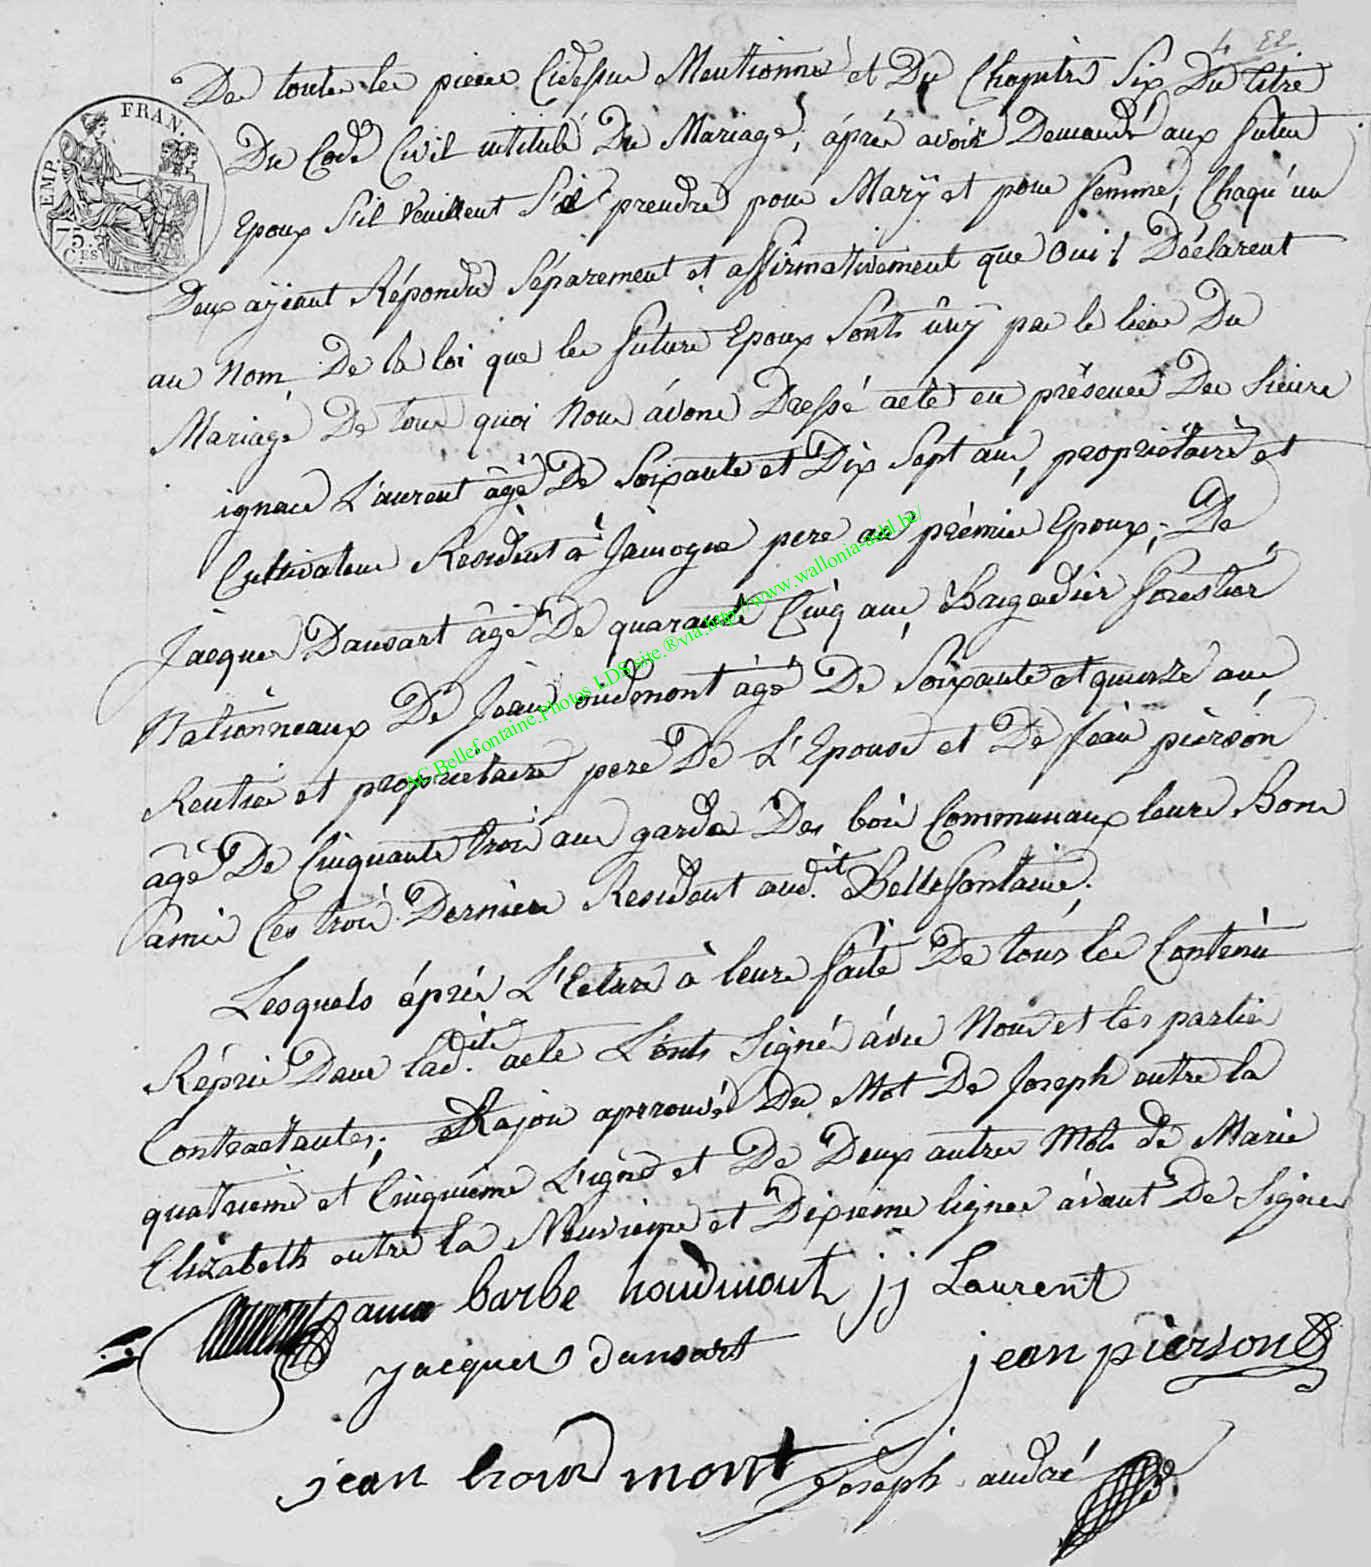 4 22
De toute les piece Cidessue Mentionné et Du Chapitre Six Du titre
FRAN.
EMP.
75.
C.ES
Du Code Civil intitulé Du Mariage, áprés avoir Demandé aux futur
Epoux S'il Veuillent S'al prendre pour Marÿ et pour femme, Chaqu'un
Deux aÿeant Répondu Séparement et affirmativement que Oui! Déclarent
au Nom De la loi que les future Epoux Sonts ûnÿ par le lien Du
Mariagé De tous quoi Nous ávons Dressé acte en présence Des Sieurs
ignace L'aurent âgé De Soixante et Dix Sept ans, propriétaire et
Cultivateur Resident à Jamogne pere au prémier Epoux, De
Jacques Dansart âgé De quarante Cinq ans, Brigadier forestier
Nationneaux De Jean oudmont âgé De Soixante et quinze ans
Rentier et proprietaire pere De L'Epouse et De Jean pierson
âgé De Cinquante trois ans garde Des bois Communaux leurs Bons
amis Ces trois Derniers Resident aud.it Bellefontaine,
Lesquels áprés L'Ecture à leurs faite De tous les Contenu
Répris Dans lad.ite acte L'onts Signé ávec Nous et les partie
Contractantes; Rajou aprouvés Du Mot De Joseph entre la
quatrieme et Cinquieme Ligne et De Deux autres Mots de Marie
Elizabeth entre la Neuvieme et Dixieme lignes ávant De Signer
Laurent anne barbe houdmont jj Laurent
jacques dansart jean pierson
jean houdmont Joseph andré
AC.Bellefontaine.Photos LDS site.®via.http://www.wallonia-asbl.be/